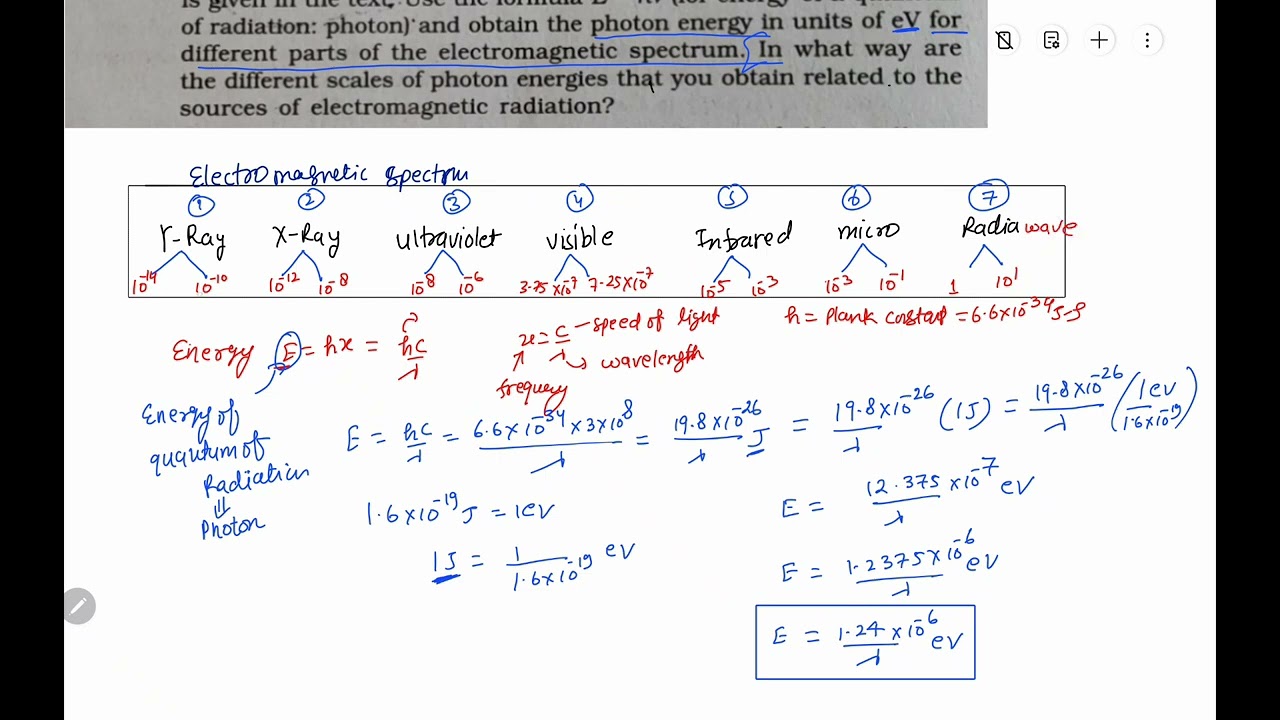 is given in the text, Use the formula E
of radiation: photon) and obtain the photon energy in units of eV for
different parts of the electromagnetic spectrum. In what way are
the different scales of photon energies that you obtain related to the
sources of electromagnetic radiation?
Electromagnetic spectrum
1 2 3 4 5 6 7
γ-Ray X-Ray ultraviolet visible Infrared micro Radia wave
10⁻¹⁴ 10⁻¹⁰ 10⁻¹² 10⁻⁸ 10⁻⁸ 10⁻⁶ 3.75×10⁻⁷ 7.25×10⁻⁷ 10⁻⁵ 10⁻³ 10⁻³ 10⁻¹ 1 10¹
h = Plank constant = 6.6×10⁻³⁴ J-S
Energy E = hν = hc/λ
ν = c/λ – speed of light
wavelength
frequency
Energy of
quantum of
Radiation
⇓
Photon
E = hc/λ = 6.6×10⁻³⁴×3×10⁸/λ = 19.8×10⁻²⁶/λ J = 19.8×10⁻²⁶/λ (1J) = 19.8×10⁻²⁶/λ (1eV/1.6×10⁻¹⁹)
1.6×10⁻¹⁹ J = 1eV
1J = 1/1.6×10⁻¹⁹ eV
E = 12.375/λ ×10⁻⁷ eV
E = 1.2375×10⁻⁶/λ eV
E = 1.24×10⁻⁶/λ eV